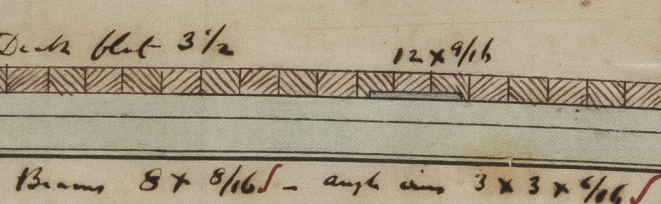 Deck flat 3 1/2
12 x 9/16
Beams 8 x 8/16 - angle irons 3 x 3 x 6/16